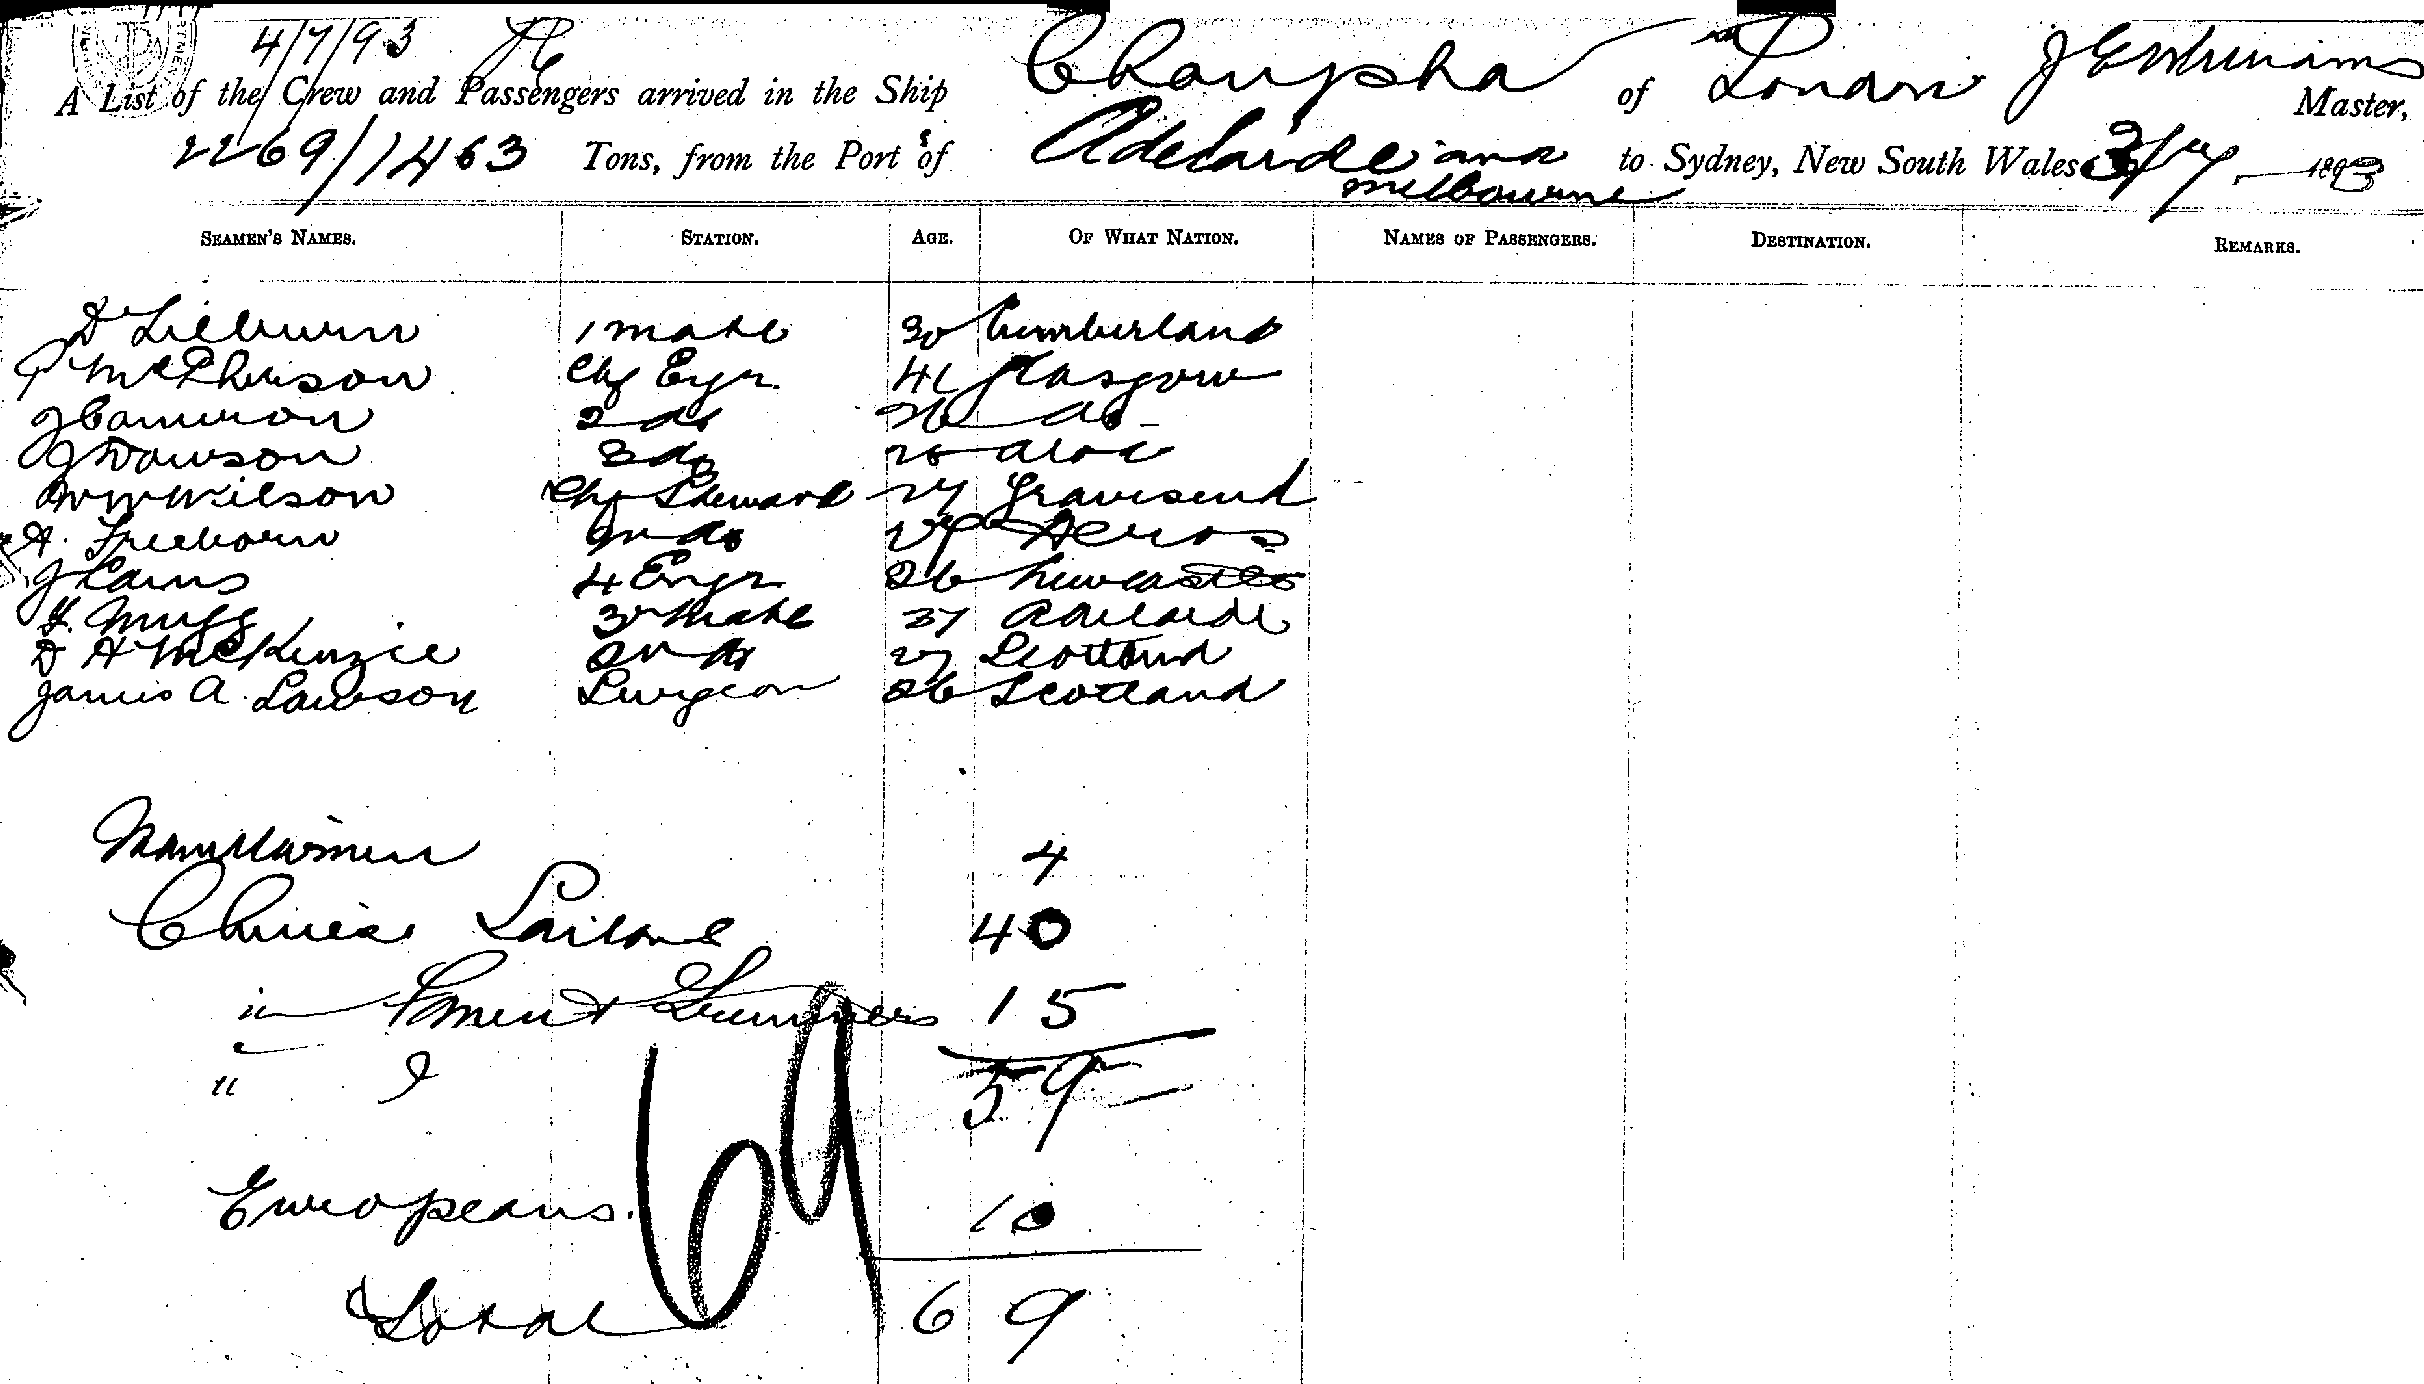 4/7/93
A List of the Crew and Passengers arrived in the Ship Changsha of London J E Williams Master,
2269/1463 Tons, from the Port of Adelaide and Melbourne to Sydney, New South Wales 3/7 1893
SEAMEN'S NAMES. STATION. AGE. OF WHAT NATION. NAMES OF PASSENGERS. DESTINATION. REMARKS.
D Lilburn 1 mate 30 Cumberland
McPherson Chf Egr 41 Glasgow
J Cameron 2 do 26 do
J Dawson 3 do
W W Wilson Chf Steward 27 Gravesend
A. Freeborn 2nd do
J Cairns 4 Engr 26 Newcastle
Mugg 3rd Mate 27 Adelaide
D A McKenzie 2nd do 27 Scotland
James A. Lawson Surgeon 26 Scotland
Manillamen 4
Chinese Sailors 40
" Firemen & Trimmers 15
" 59
Europeans. 10
Total 69
69